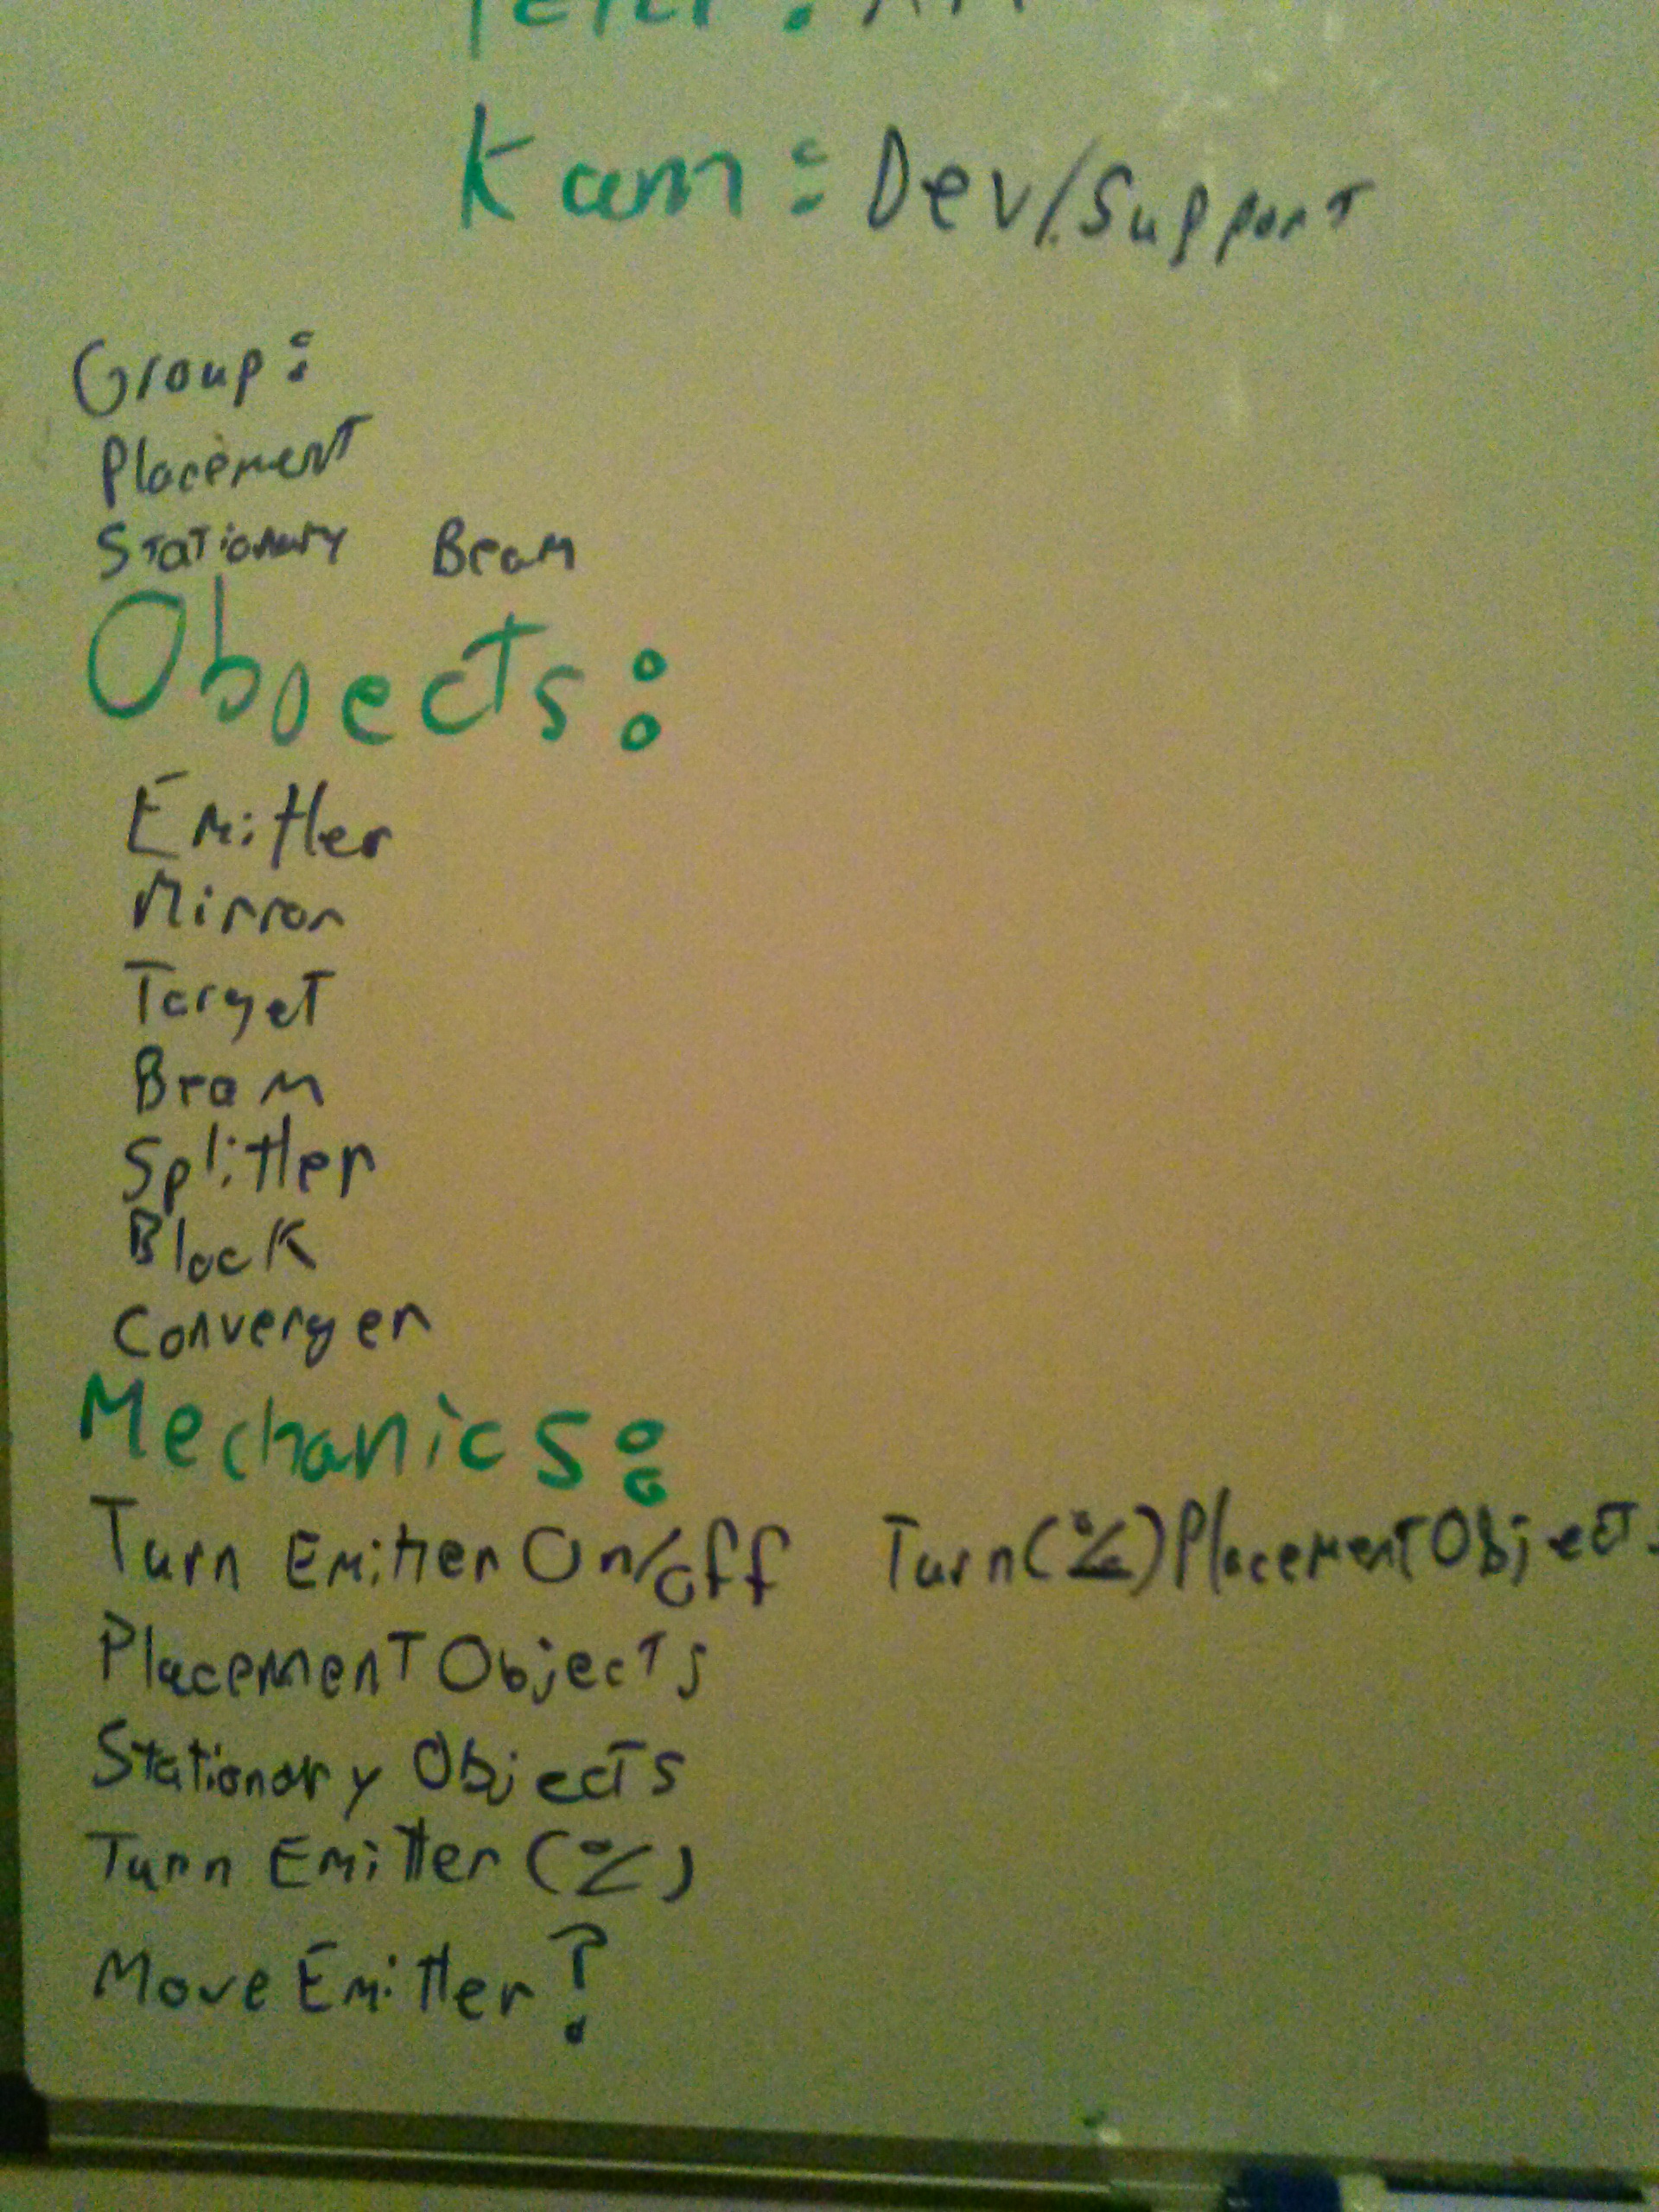 Kam: Dev/Support
Group:
Placement
Stationary Beam
Objects:
Emitter
Mirror
Target
Beam
Splitter
Block
Converger
Mechanics:
Turn Emitter On/off Turn(%)Placement Object
Placement Objects
Stationary Objects
Turn Emitter (%)
Move Emitter?